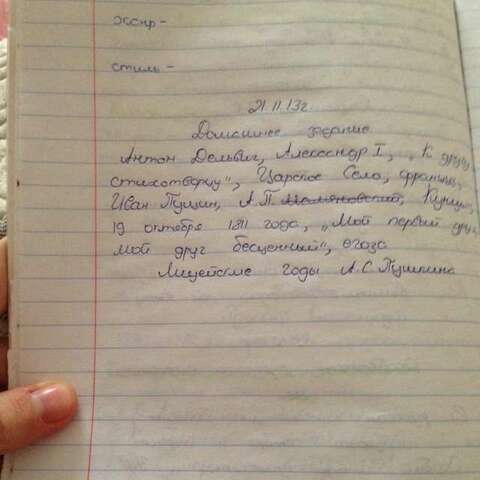 жанр -
стиль -
21.11.13г.
Домашнее задание
Антон Дельвиг, Александр I, „К другу
стихотворцу", Царское Село, француз,
Иван Пущин, А.П. Куницын,
19 октября 1811 года, „Мой первый друг,
мой друг бесценный", егоза
Лицейские годы А.С. Пушкина